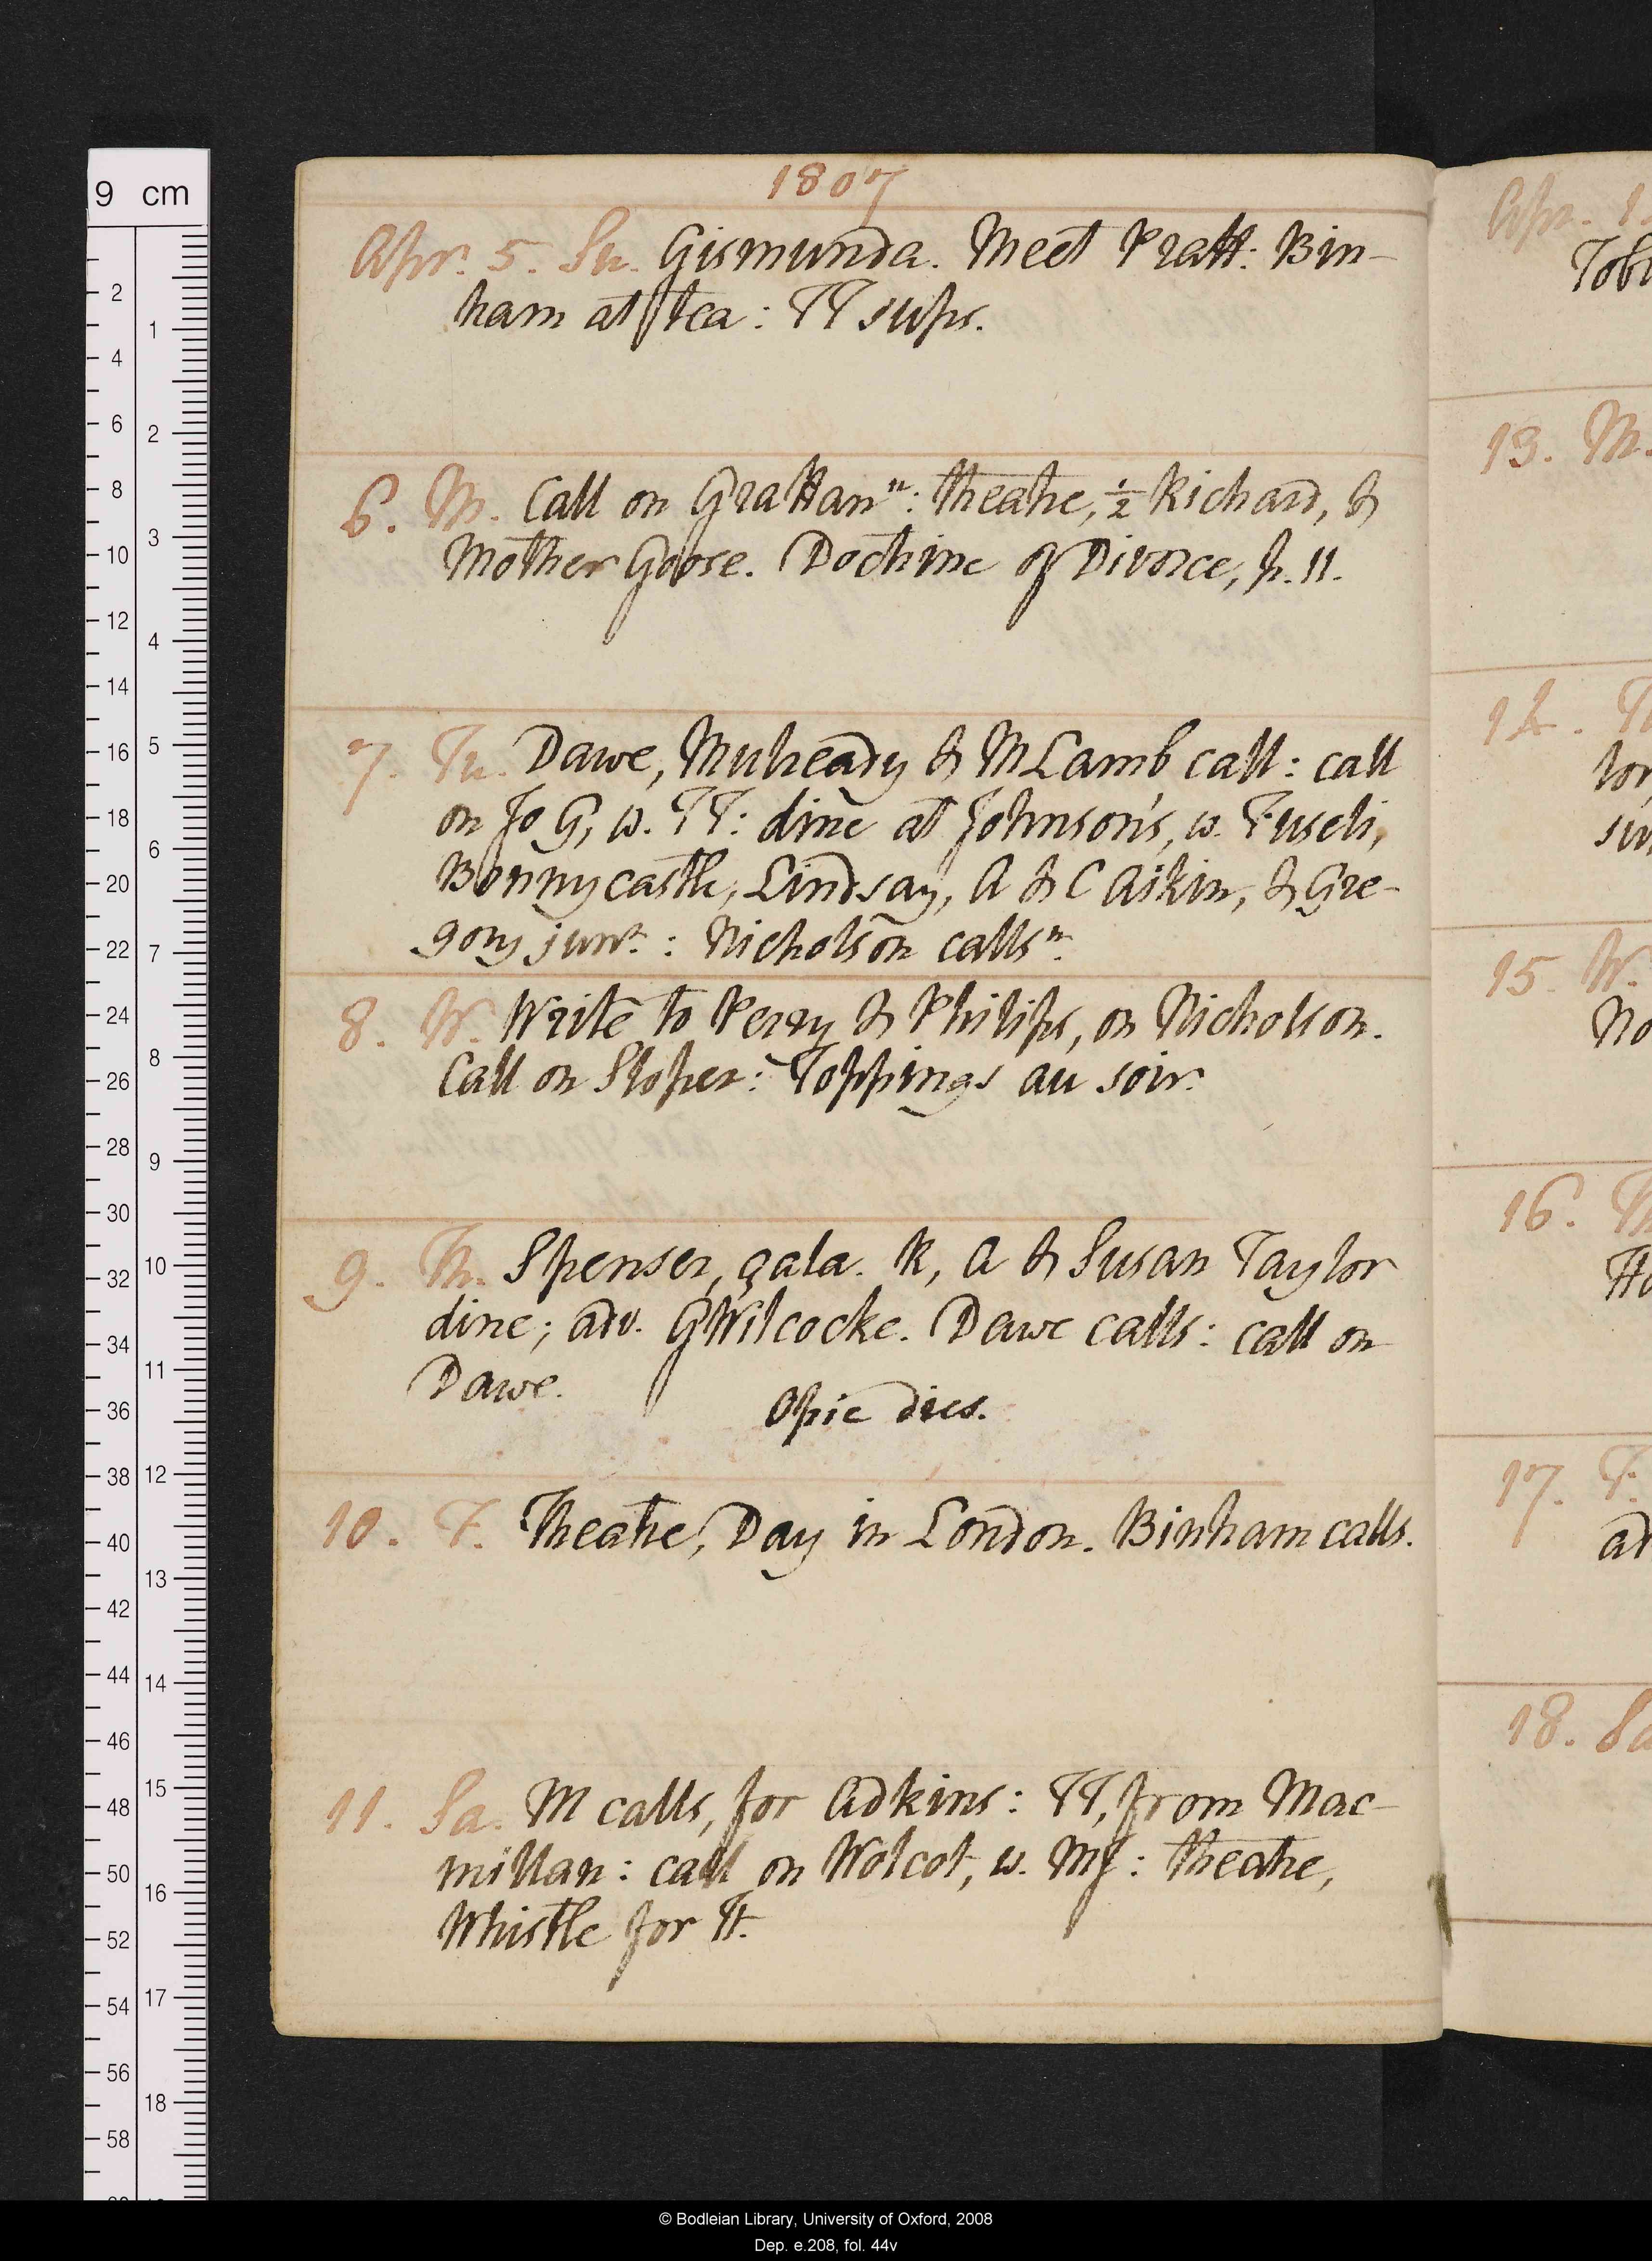 1807
Apr. 5. Su. Gismunda. Meet Pratt: Bin-
ham at tea: TT sups.
6. M. Call on Grattan n: theatre, ½ Richard, &
Mother Goose. Doctrine of Divorce, p. 11.
7. Tu. Dawe, Mulready & M Lamb call: call
on Jo G, w. TT: dine at Johnson's, w. Fuseli,
Bonnycastle, Lindsay, A & C Aikin, & Gre-
gory junr.: Nicholson calls n.
8. W. Write to Perry & Philips, on Nicholson.
Call on Sloper: Toppings au soir.
9. Th. Spenser, gala. K, A & Susan Taylor
dine; adv. GWilcocke. Dawe calls: call on
Dawe.
Opie dies.
10. F. Theatre, Day in London. Binham calls.
11. Sa. M calls, for Adkins: TT, from Mac-
millan: call on Wolcot, w. MJ: theatre,
Whistle for It.
Apr. 1
Tobi
13. M.
14. T
lor
sin
15. W.
No
16. Th
Ho
17. F.
at
18. Sa
9 cm
2
4
6
8
10
12
14
16
18
20
22
24
26
28
30
32
34
36
38
40
42
44
46
48
50
52
54
56
58
1
2
3
4
5
6
7
8
9
10
11
12
13
14
15
16
17
18
© Bodleian Library, University of Oxford, 2008
Dep. e.208, fol. 44v